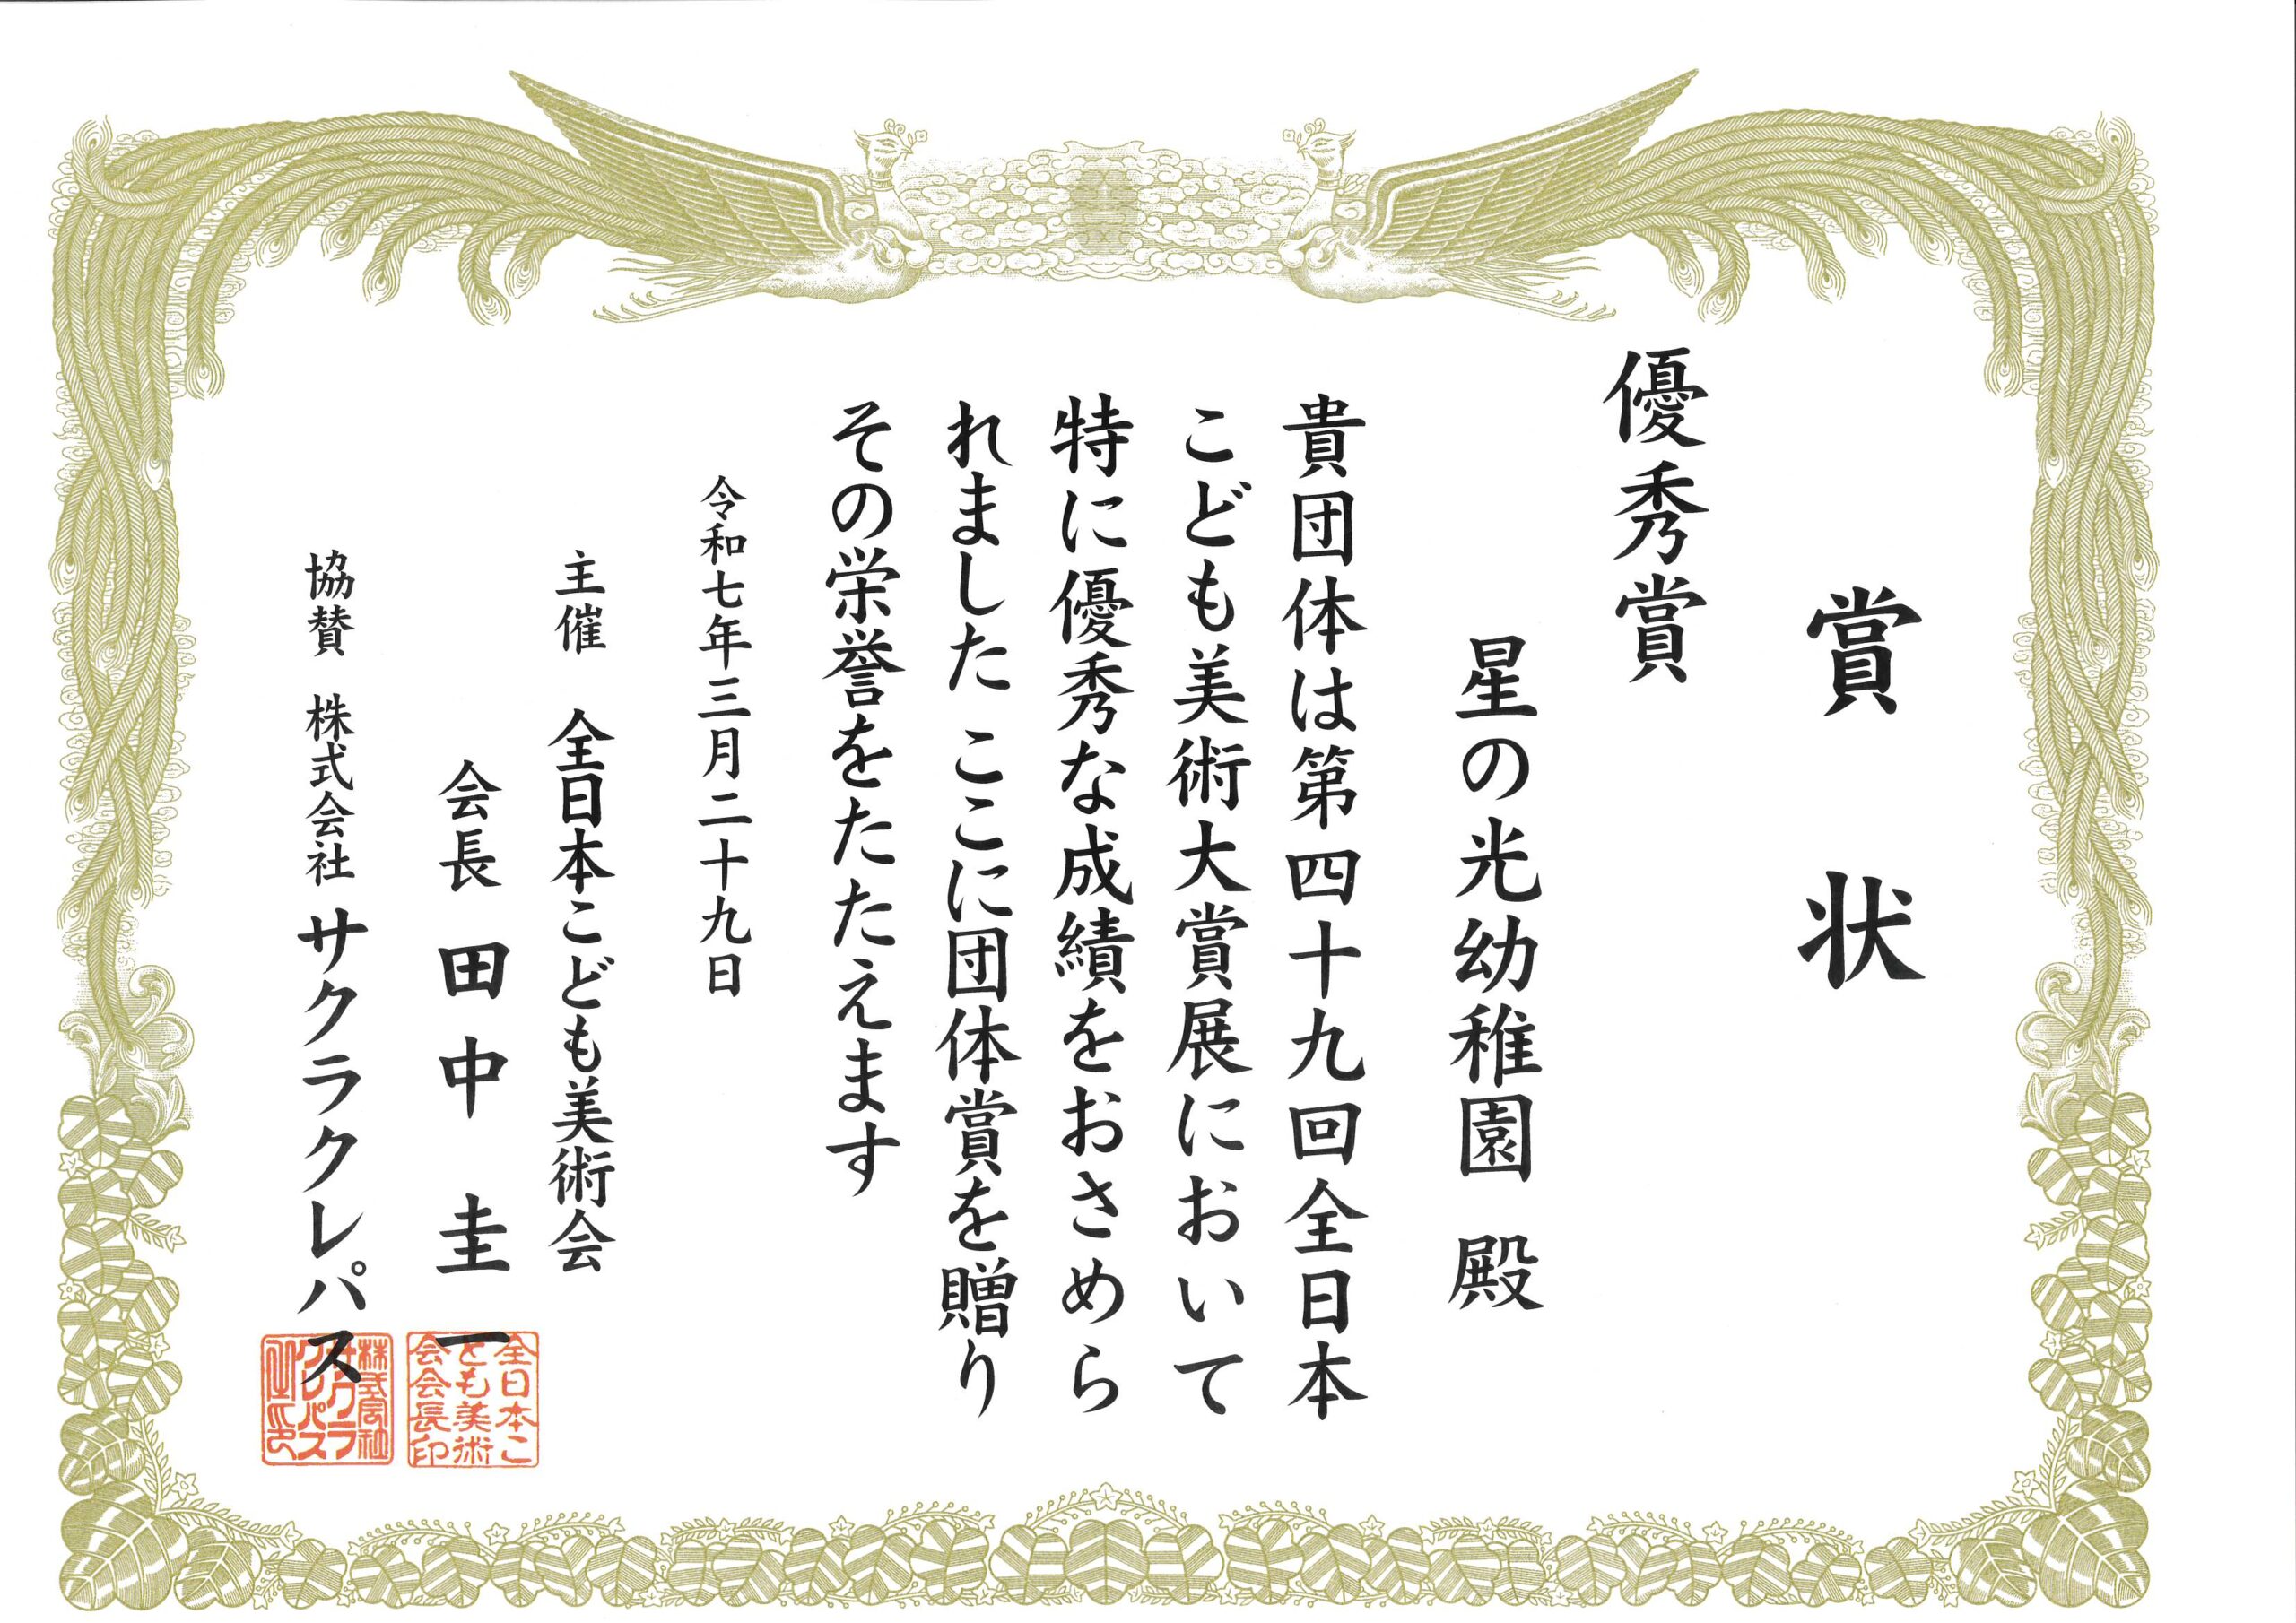 賞状
優秀賞
星の光幼稚園 殿
貴団体は第四十九回全日本
こども美術大賞展において
特に優秀な成績をおさめら
れました ここに団体賞を贈り
その栄誉をたたえます
令和七年三月二十九日
主催 全日本こども美術会
会長 田中 圭一
協賛 株式会社 サクラクレパス
全日本こ
ども美術
会会長印
株式会社
サクラ
クレパス
之印